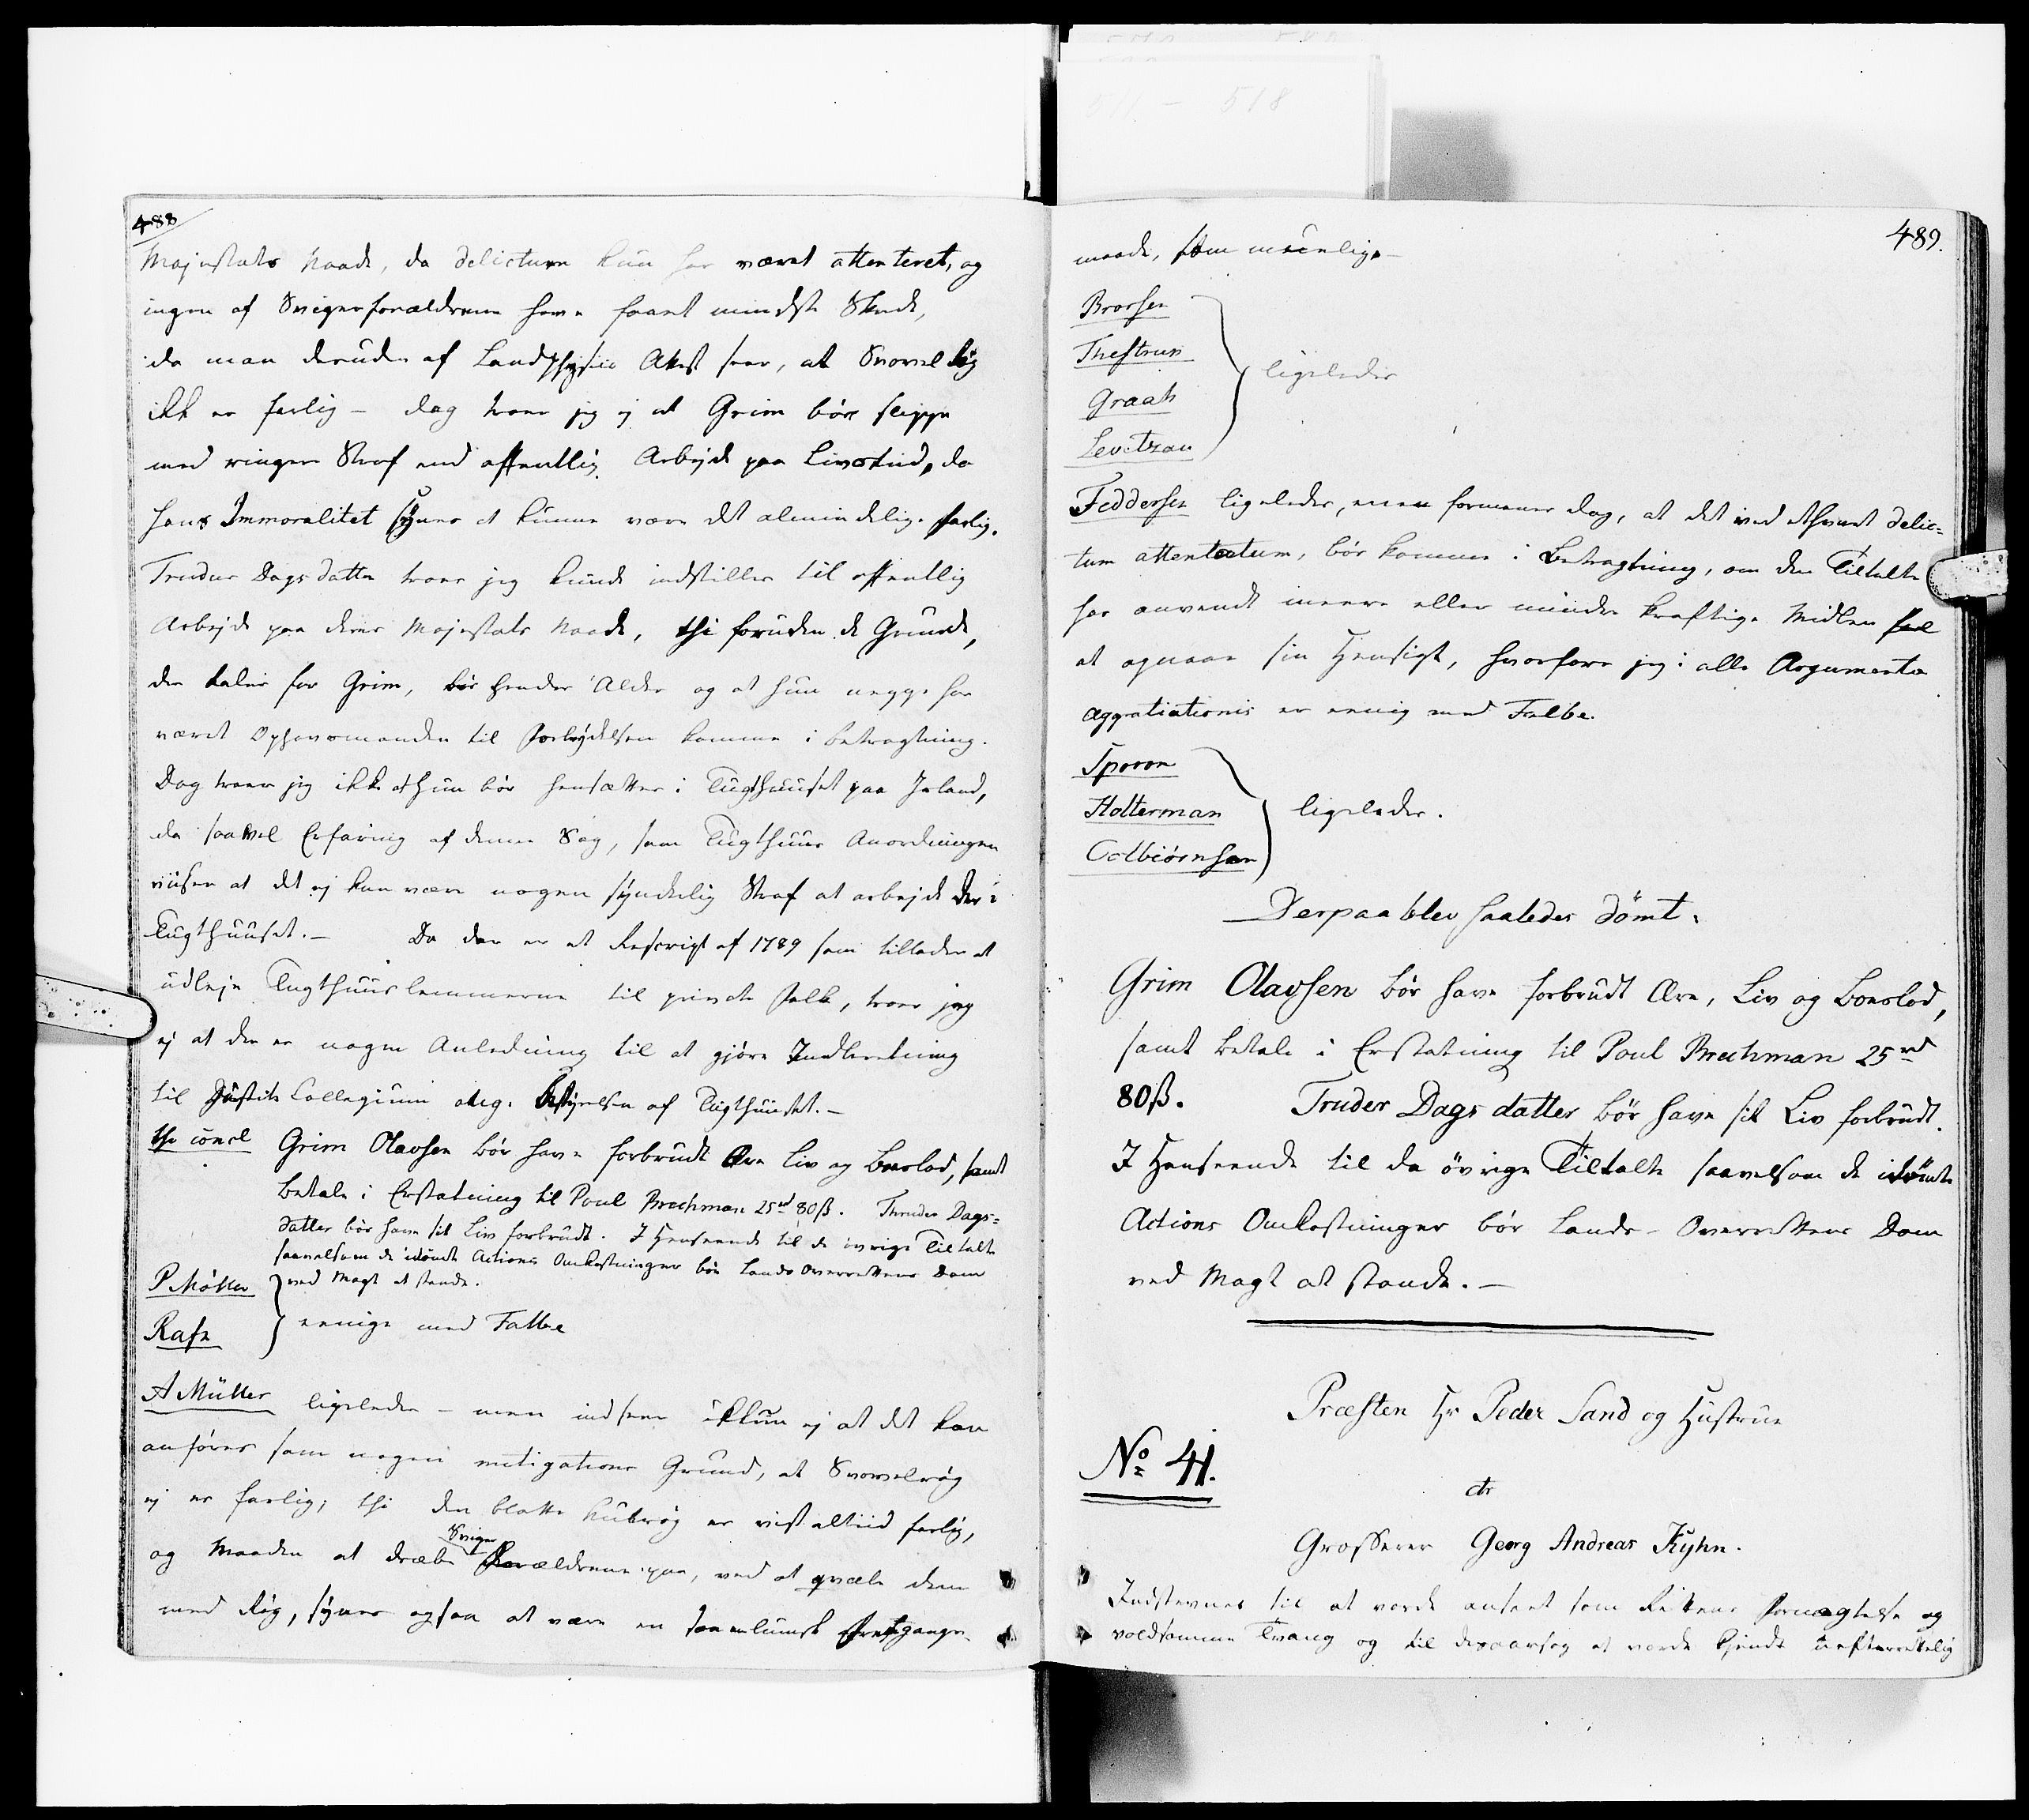 488
Majestæts Naade, da delictum kun har været attenteret, og
ingen af Svigerforældrene have faaet mindste Skade,
da man desuden af Landphysici Attest seer, at Svovel Røg
ikke er farlig – dog troer jeg ej at Grim bør slippe
med ringere Straf end offentlig Arbejde paa Livstid, da
hans Immoralitet synes at kunne være det almindelige farlig.
Trudur Dags datter troer jeg kunde indstilles til offentlig
Arbejde paa deres Majestæts Naade, thi foruden de Grunde,
der taler for Grim, bør hendes Alder og at hun neppe har
været Ophavsmanden til Forbrydelsen komme i betragtning.
Dog troer jeg ikke at hun bør hensættes i Tugthuuset paa Island,
da saavel Erfaring af denne Sag, som Tugthuus Anordningen
viiser at det ej kan være nogen synderlig Straf at arbejde der i
Tugthuuset. – Da der er et Rescript af 1789 som tillader at
udleje Tugthuuslemmerne til private Folk, troer jeg
ej at der er nogen Anledning til at gjøre Indberetning
til Justits Collegium ang. Bestyrelsen af Tugthuuset. –
thi concl Grim Olavsen bør have forbrudt Ære Liv og Boeslod, samt
betale i Erstatning til Poul Brechman 25rd 80ß. Thruder Dags=
datter bør have sit Liv forbrudt. I Henseende til de øvrige Tiltalte
saavelsom de idømte Actions Omkostninger bør Lands Overrettens Dom
ved Magt at stande.
P Møller
Rafn } eenige med Falbe
A Müller ligeledes – men indseer ikkun ej at det kan
anføres som nogen mitigations Grund, at Svovelrøg
ej er farlig; thi den blotte Kulrøg er vist altiid farlig,
Sviger
og Maaden at dræbe Forældrene paa, ved at qvæle dem
med Røg, synes ogsaa at være en saa lumsk Fremgangs
489.
maade, som muelig –
Brorsen
Thestrup
Graah
Levetzau } ligeledes
Feddersen ligeledes, men formener dog, at det ved ethvert delic=
tum attentatum, bør komme i Betragtning, om den Tiltalte
har anvendt meere eller mindre kraftige Midler for
at opnaae sin Hensigt, hvorfore jeg i alle Argumenta
aggratiationis er eenig med Falbe.
Sporon
Holterman
Colbiørnsen } ligeledes.
Derpaa blev saaledes dømt:
Grim Olavsen bør have forbrudt Ære, Liv og Boeslod,
samt betale i Erstatning til Poul Brechman 25rd
80ß. Truder Dags datter bør have sit Liv forbrudt.
I Henseende til de øvrige Tiltalte saavelsom de idømte
Actions Omkostninger bør Lands-Overrettens Dom
ved Magt at stande. –
Præsten Hr Peder Sand og Hustrue
No 41.
ctr
Grosserer Georg Andreas Kyhn.
Indstevnes til at vorde anseet som Rettens Fornægtelse og
voldsomme Tvang og til desaarsag at vorde kjendt uefterrettelig